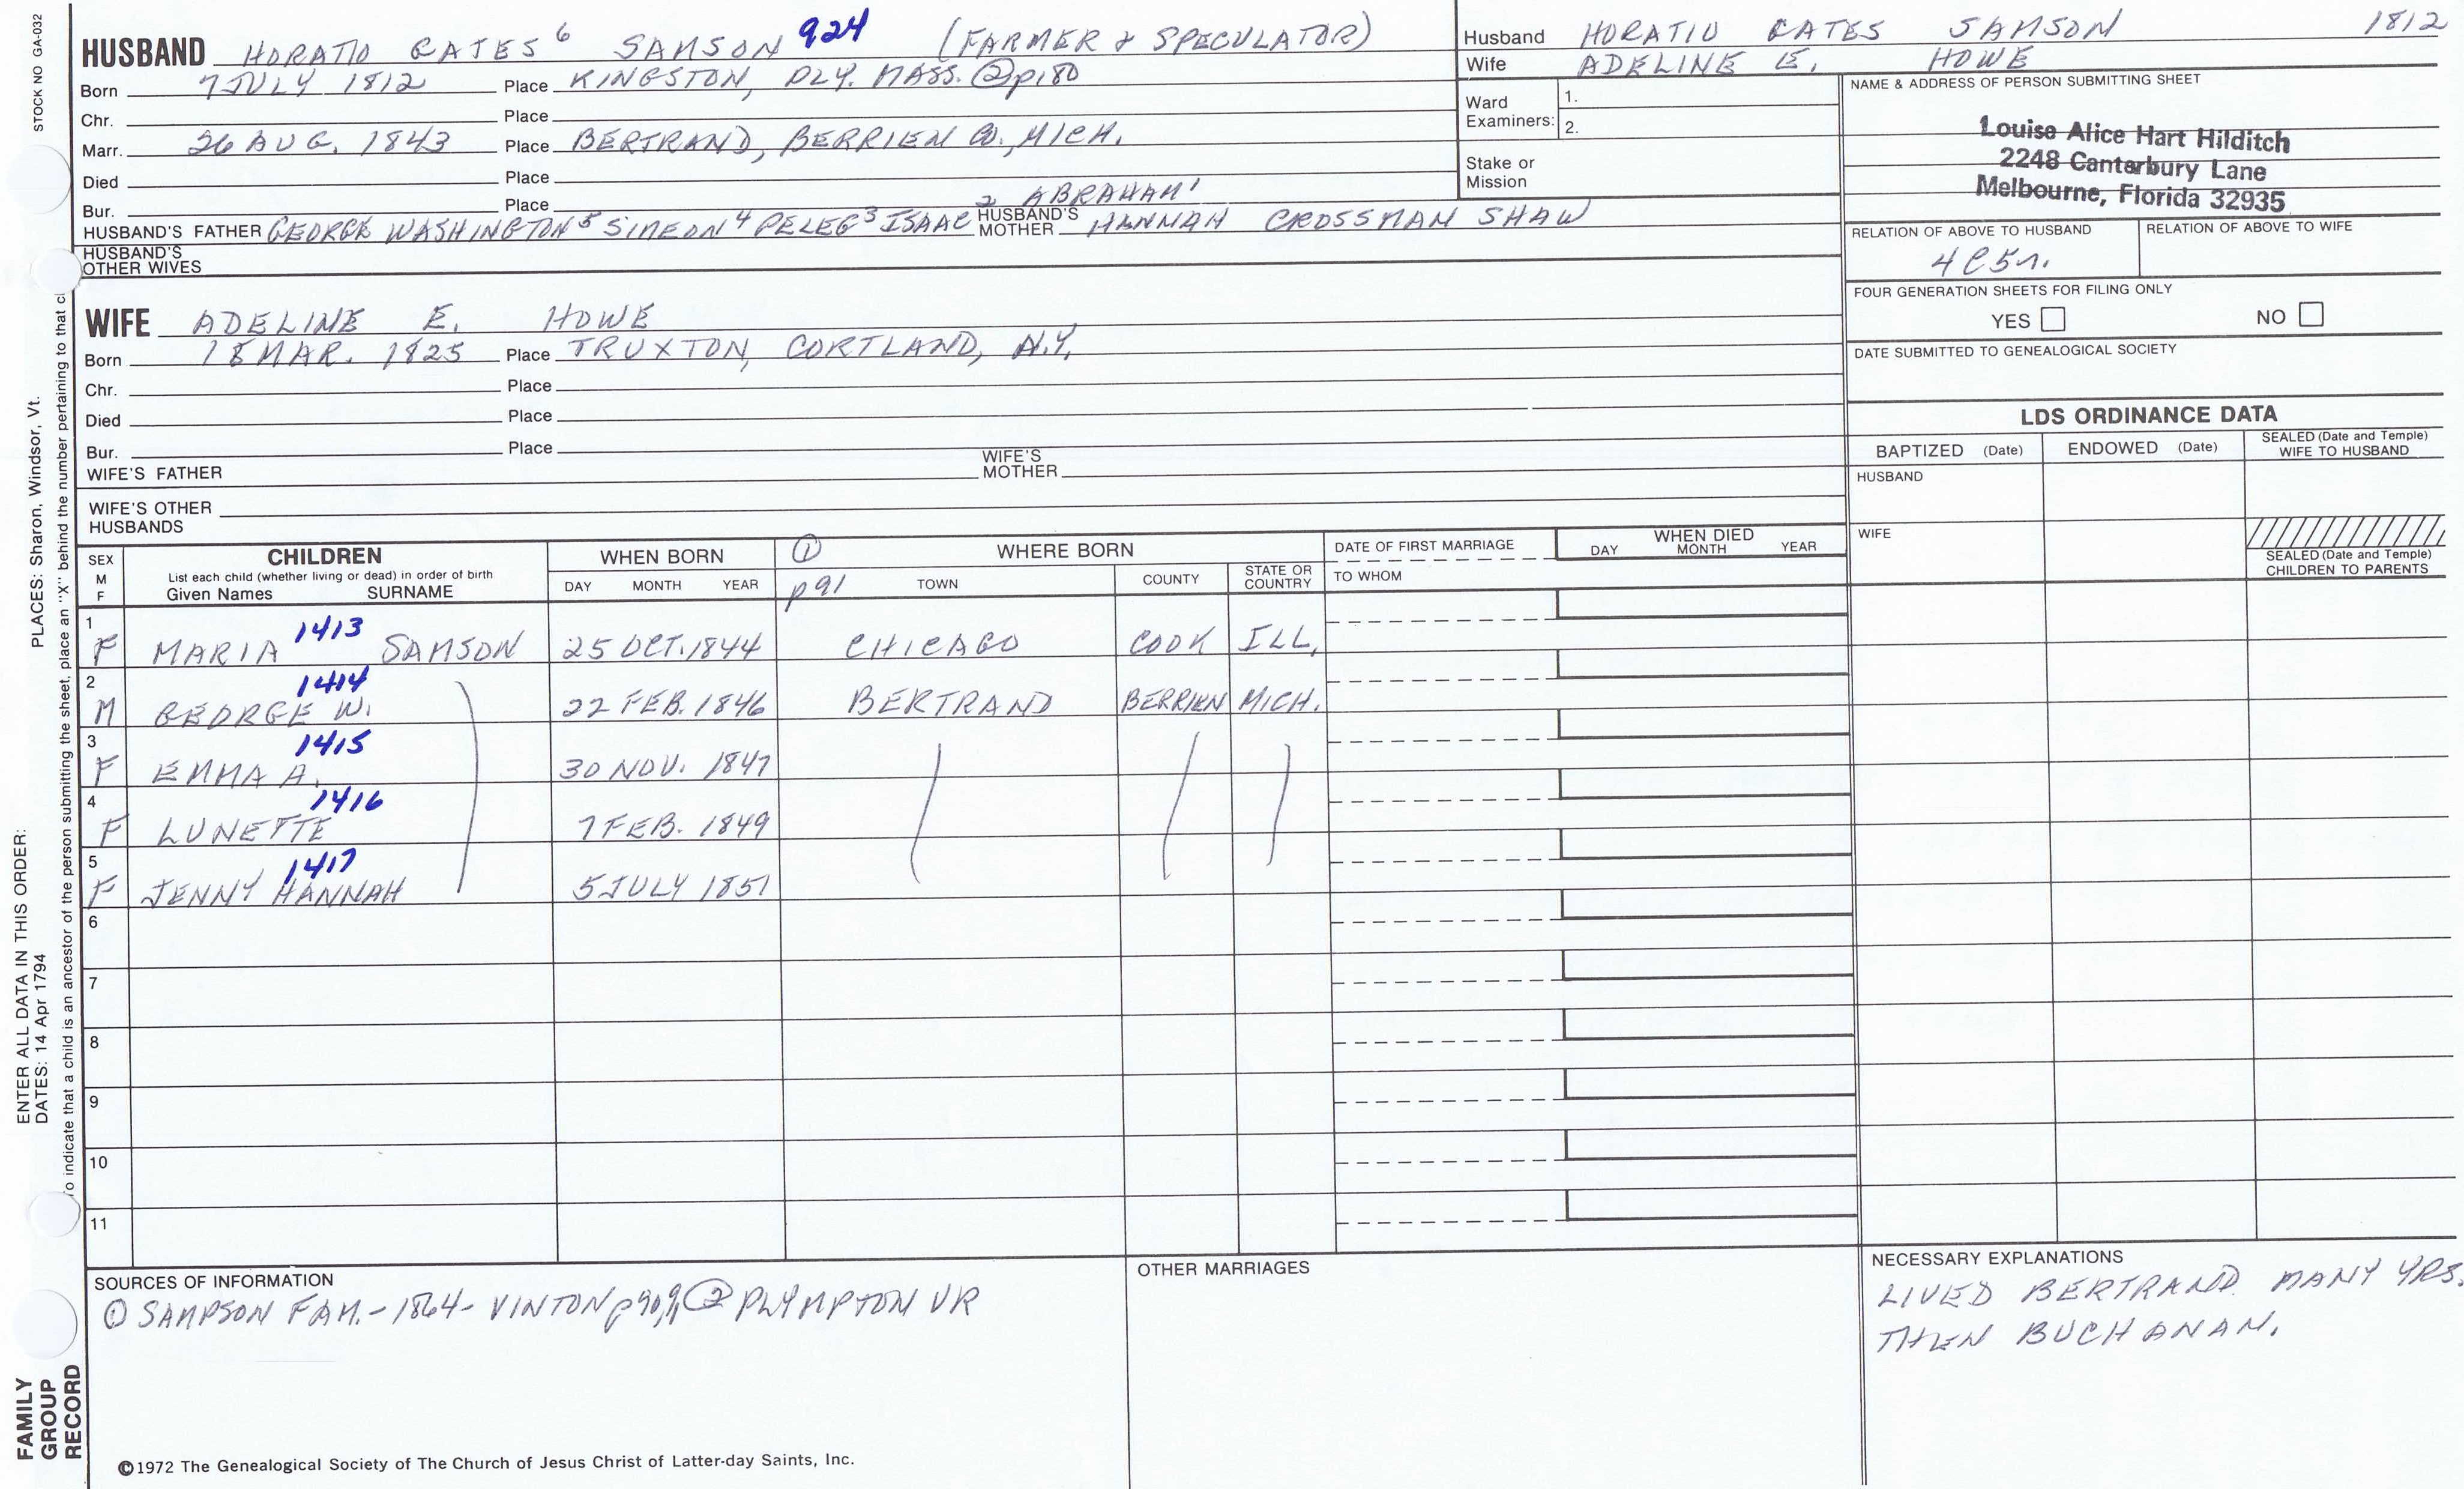 STOCK NO GA-032
HUSBAND HORATIO GATES 6 SAMSON 924 (FARMER & SPECULATOR)
Born 7 JULY 1812 Place KINGSTON, PLY. MASS. ② p180
Chr. Place
Marr. 26 AUG. 1843 Place BERTRAND, BERRIEN CO., MICH.
Died Place
Bur. Place
2 ABRAHAM 1
HUSBAND'S FATHER GEORGE WASHINGTON 5 SIMEON 4 PELEG 3 ISAAC HUSBAND'S MOTHER HANNAH CROSSMAN SHAW
HUSBAND'S OTHER WIVES
WIFE ADELINE E. HOWE
Born 18 MAR. 1825 Place TRUXTON, CORTLAND, N.Y.
Chr. Place
Died Place
Bur. Place
WIFE'S FATHER WIFE'S MOTHER
WIFE'S OTHER HUSBANDS
Husband HORATIO GATES SAMSON 1812
Wife ADELINE E. HOWE
Ward Examiners: 1.
2.
Stake or Mission
NAME & ADDRESS OF PERSON SUBMITTING SHEET
Louise Alice Hart Hilditch
2248 Canterbury Lane
Melbourne, Florida 32935
RELATION OF ABOVE TO HUSBAND RELATION OF ABOVE TO WIFE
4C5r.
FOUR GENERATION SHEETS FOR FILING ONLY
YES NO
DATE SUBMITTED TO GENEALOGICAL SOCIETY
LDS ORDINANCE DATA
BAPTIZED (Date) ENDOWED (Date) SEALED (Date and Temple) WIFE TO HUSBAND
HUSBAND
WIFE
SEALED (Date and Temple) CHILDREN TO PARENTS
SEX M F
CHILDREN
List each child (whether living or dead) in order of birth
Given Names SURNAME
WHEN BORN
DAY MONTH YEAR
① WHERE BORN
p91 TOWN COUNTY STATE OR COUNTRY
DATE OF FIRST MARRIAGE
TO WHOM
WHEN DIED
DAY MONTH YEAR
1 F MARIA 1413 SAMSON 25 OCT. 1844 CHICAGO COOK ILL.
2 M GEORGE W. 1414 22 FEB. 1846 BERTRAND BERRIEN MICH.
3 F EMMA A. 1415 30 NOV. 1847
4 F LUNETTE 1416 7 FEB. 1849
5 F JENNY HANNAH 1417 5 JULY 1851
6
7
8
9
10
11
SOURCES OF INFORMATION
① SAMPSON FAM. - 1864 - VINTON ② PLYMPTON VR
OTHER MARRIAGES
NECESSARY EXPLANATIONS
LIVED BERTRAND MANY YRS.
THEN BUCHANAN.
©1972 The Genealogical Society of The Church of Jesus Christ of Latter-day Saints, Inc.
FAMILY
GROUP
RECORD
ENTER ALL DATA IN THIS ORDER:
DATES: 14 Apr 1794
PLACES: Sharon, Windsor, Vt.
indicate that a child is an ancestor of the person submitting the sheet, place an "X" behind the number pertaining to that